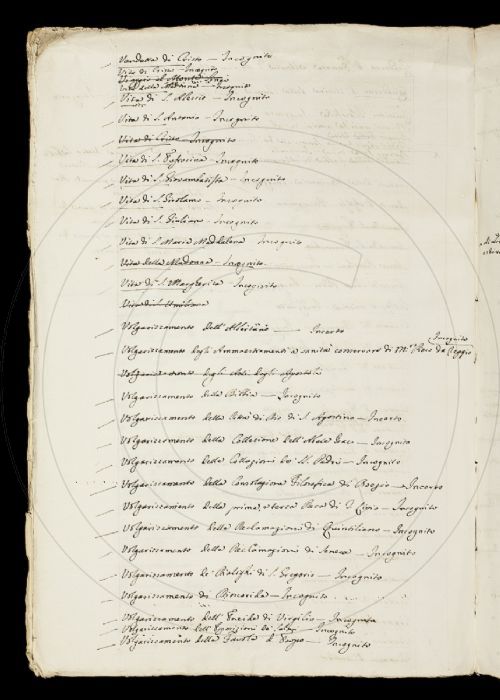 Vendetta di Cristo — Incognito
Vita di Cristo Incognito
Viaggio al Monte
Vita della Madonna — Incognito
Vita di S. Alessio — Incognito
Vita di S. Antonio — Incognito
Vita di Cristo — Incognito
Vita di S. Eufrosina — Incognito
Vita di S. Giovambatista — Incognito
Vita di S. Girolamo — Incognito
Vita di S. Giuliano — Incognito
Vita di S. Maria Maddalena Incognito
Vita della Madonna — Incognito
Vita di S. Margherita — Incognito
Vita di S. Umiliana
Volgarizzamento dell'Albertano — Incerto
Incognito
Volgarizzamento degli Ammaestramenti a sanità conservare di M.º da Reggio
Volgarizzamento degli Atti degli Apostoli
Volgarizzamento della Bibbia — Incognito
Volgarizzamento della Città di Dio di S. Agostino — Incerto
Volgarizzamento della Collazione dell'Abate Isac — Incognito
Volgarizzamento delle Collazioni dei SS. Padri — Incognito
Volgarizzamento della Consolazione Filosofica di Boezio — Incerto
Volgarizzamento della prima, e terza Deca di T. Livio — Incognito
Volgarizzamento delle Declamazioni di Quintiliano — Incognito
Volgarizzamento delle Declamazioni di Seneca — Incognito
Volgarizzamento de' Dialoghi di S. Gregorio — Incognito
Volgarizzamento di — Incognito
Volgarizzamento dell'Eneida di Virgilio — Incognito
Volgarizzamento dell'Esposizioni de' Salmi — Incognito
Volgarizzamento delle Favole d'Esopo — Incognito